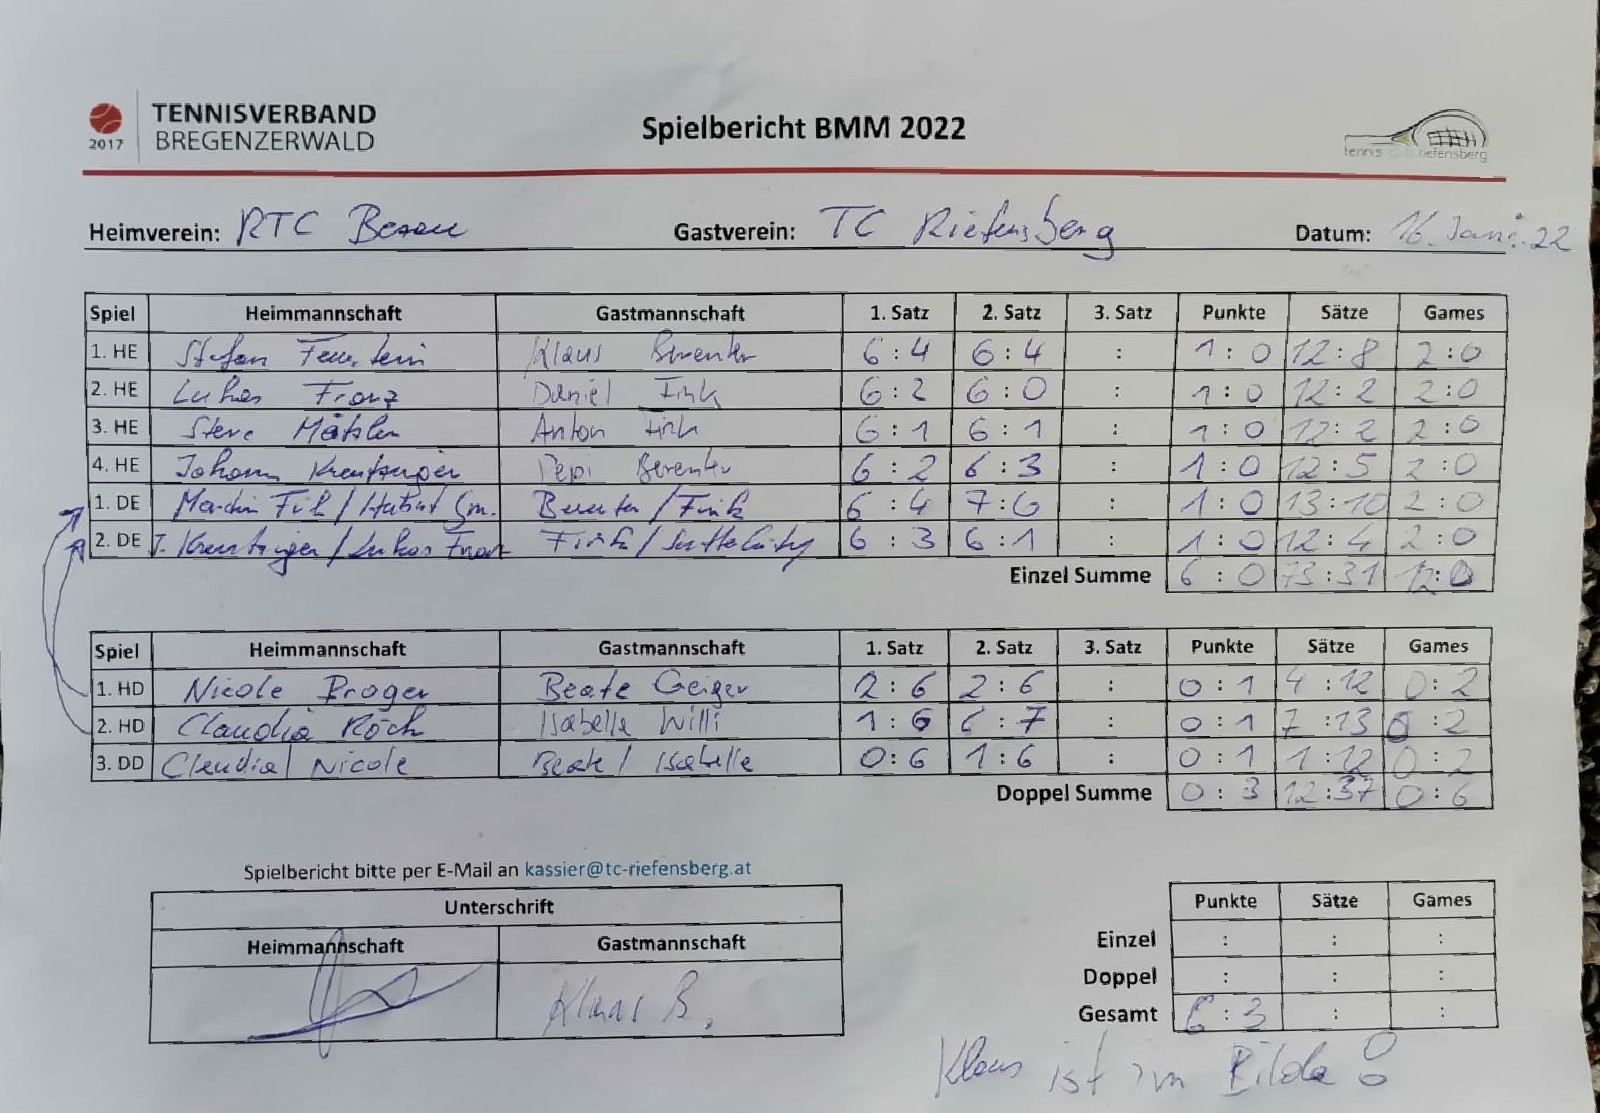 TENNISVERBAND
2017 BREGENZERWALD
Spielbericht BMM 2022
tennis riefensberg
Heimverein: RTC Bezau Gastverein: TC Riefensberg Datum: 16. Juni. 22
Spiel Heimmannschaft Gastmannschaft 1. Satz 2. Satz 3. Satz Punkte Sätze Games
1. HE Stefan Feuerstein Klaus Bereuter 6:4 6:4 : 1:0 12:8 2:0
2. HE Lukas Franz Daniel Fink 6:2 6:0 : 1:0 12:2 2:0
3. HE Steve Mätzler Anton Fink 6:1 6:1 : 1:0 12:2 2:0
4. HE Johann Kreutziger Pepi Bereuter 6:2 6:3 : 1:0 12:5 2:0
1. DE Bereuter / Fink 6:4 7:6 : 1:0 13:10 2:0
2. DE J. Kreutziger / Lukas Franz Fink / 6:3 6:1 : 1:0 12:4 2:0
Einzel Summe 6:0 73:31 12:0
Spiel Heimmannschaft Gastmannschaft 1. Satz 2. Satz 3. Satz Punkte Sätze Games
1. HD Nicole Beate Geiger 2:6 2:6 : 0:1 4:12 0:2
2. HD Claudia Röck Isabella Willi 1:6 6:7 : 0:1 7:13 0:2
3. DD Claudia / Nicole Beate / Isabelle 0:6 1:6 : 0:1 1:12 0:2
Doppel Summe 0:3 12:37 0:6
Spielbericht bitte per E-Mail an kassier@tc-riefensberg.at
Unterschrift
Heimmannschaft Gastmannschaft
Klaus B.
Punkte Sätze Games
Einzel : : :
Doppel : : :
Gesamt 6:3 : :
Klaus ist im Bilde!